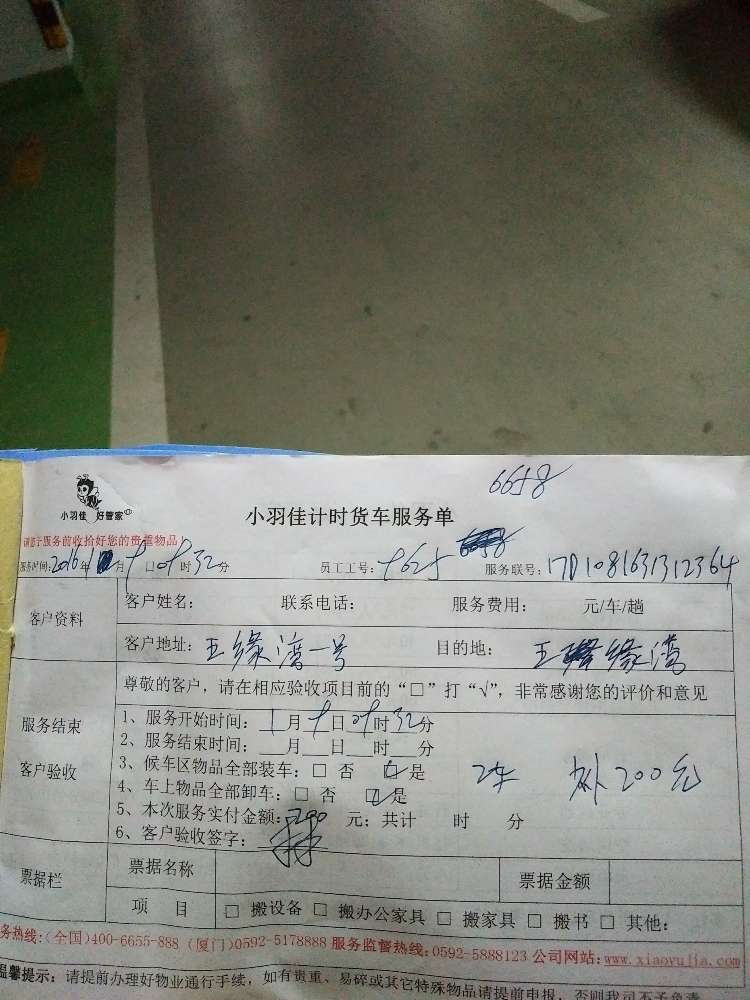 6658
小羽佳 好管家
小羽佳计时货车服务单
请您于服务前收拾好您的贵重物品
服务时间: 2016年1月9日09时32分 员工工号: 9625 服务联号: 17D1081631312364
客户资料 客户姓名: 联系电话: 服务费用: 元/车/趟
客户地址: 五缘湾一号 目的地: 五缘湾
尊敬的客户，请在相应验收项目前的“□”打“√”，非常感谢您的评价和意见
服务结束
客户验收
1、服务开始时间: 1月9日09时32分
2、服务结束时间: 月 日 时 分
3、候车区物品全部装车: □ 否 □是
4、车上物品全部卸车: □ 否 □是
2车 补200元
5、本次服务实付金额: 元; 共计 时 分
6、客户验收签字:
票据栏 票据名称 票据金额
项 目 □ 搬设备 □ 搬办公家具 □ 搬家具 □ 搬书 □ 其他:
务热线:(全国)400-6655-888 (厦门)0592-5178888 服务监督热线:0592-5888123 公司网站: www.xiaoyujia.com
温馨提示: 请提前办理好物业通行手续，如有贵重、易碎或其它特殊物品请提前申报，否则我司不予负责